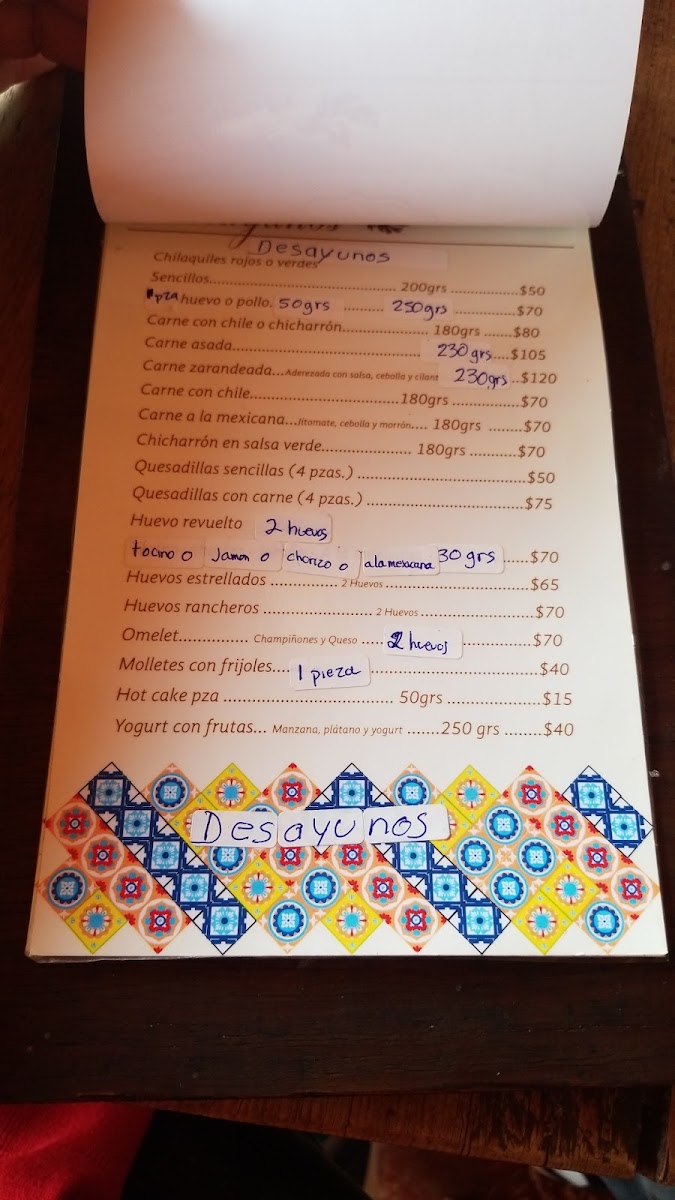 Desayunos
Chilaquiles rojos o verdes
Sencillos........................ 200grs ................$50
1pza huevo o pollo. 50grs ........... 250grs ...............$70
Carne con chile o chicharrón.................. 180grs .......$80
Carne asada....................................... 230grs....$105
Carne zarandeada...Aderezada con salsa, cebolla y cilant 230grs ..$120
Carne con chile................................180grs ..............$70
Carne a la mexicana...Jitomate, cebolla y morrón.... 180grs .......$70
Chicharrón en salsa verde................... 180grs ...........$70
Quesadillas sencillas (4 pzas.) ...............................$50
Quesadillas con carne (4 pzas.) ...............................$75
Huevo revuelto 2 huevos
tocino o Jamon o chorizo o ala mexicana 30 grs ......$70
Huevos estrellados .............. 2 Huevos ..............................$65
Huevos rancheros ....................... 2 Huevos .......................$70
Omelet.............. Champiñones y Queso ..... 2 huevos ..............$70
Molletes con frijoles.... 1 pieza ..................................$40
Hot cake pza ................................. 50grs ..................$15
Yogurt con frutas... Manzana, plátano y yogurt .......250 grs ........$40
Desayunos